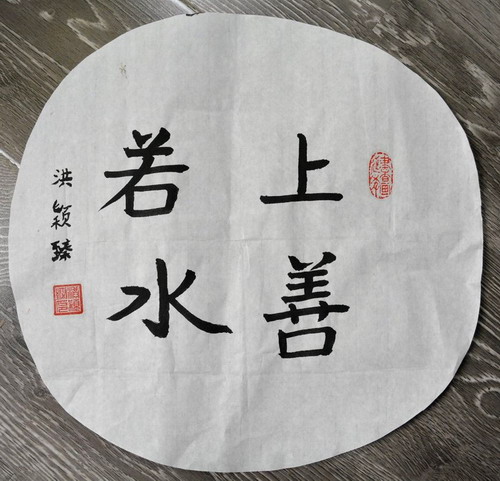 上善
若水
洪颖臻